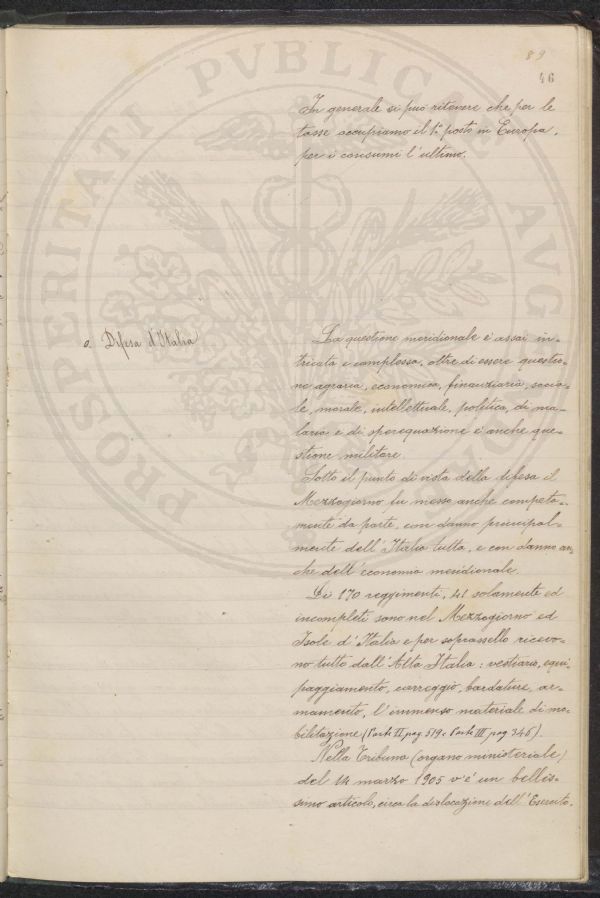 89
46
In generale si può ritenere che per le
tasse occupiamo il 1° posto in Europa,
per i consumi l'ultimo.
o. Difesa d'Italia
La questione meridionale è assai in-
tricata e complessa, oltre di essere questio-
ne agraria, economica, finanziaria, socia-
le, morale, intellettuale, politica, di ma-
laria e di sperequazione è anche que-
stione militare.
Sotto il punto di vista della difesa il
Mezzogiorno fu messo anche competa-
mente da parte, con danno principal-
mente dell'Italia tutta, e con danno an-
che dell'economia meridionale.
Di 170 reggimenti, 41 solamente ed
incompleti sono nel Mezzogiorno ed
Isole d'Italia e per soprassello ricevo-
no tutto dall'Alta Italia: vestiario, equi-
paggiamento, carreggio, bardature, ar-
mamento, l'immenso materiale di mo-
bilitazione (Parte II, pag. 519 e Parte III pag 346).
Nella Tribuna (organo ministeriale)
del 14 marzo 1905 v'è un bellis-
simo articolo, circa la dislocazione dell'Esercito.
PROSPERITATI PVBLICAE AVG